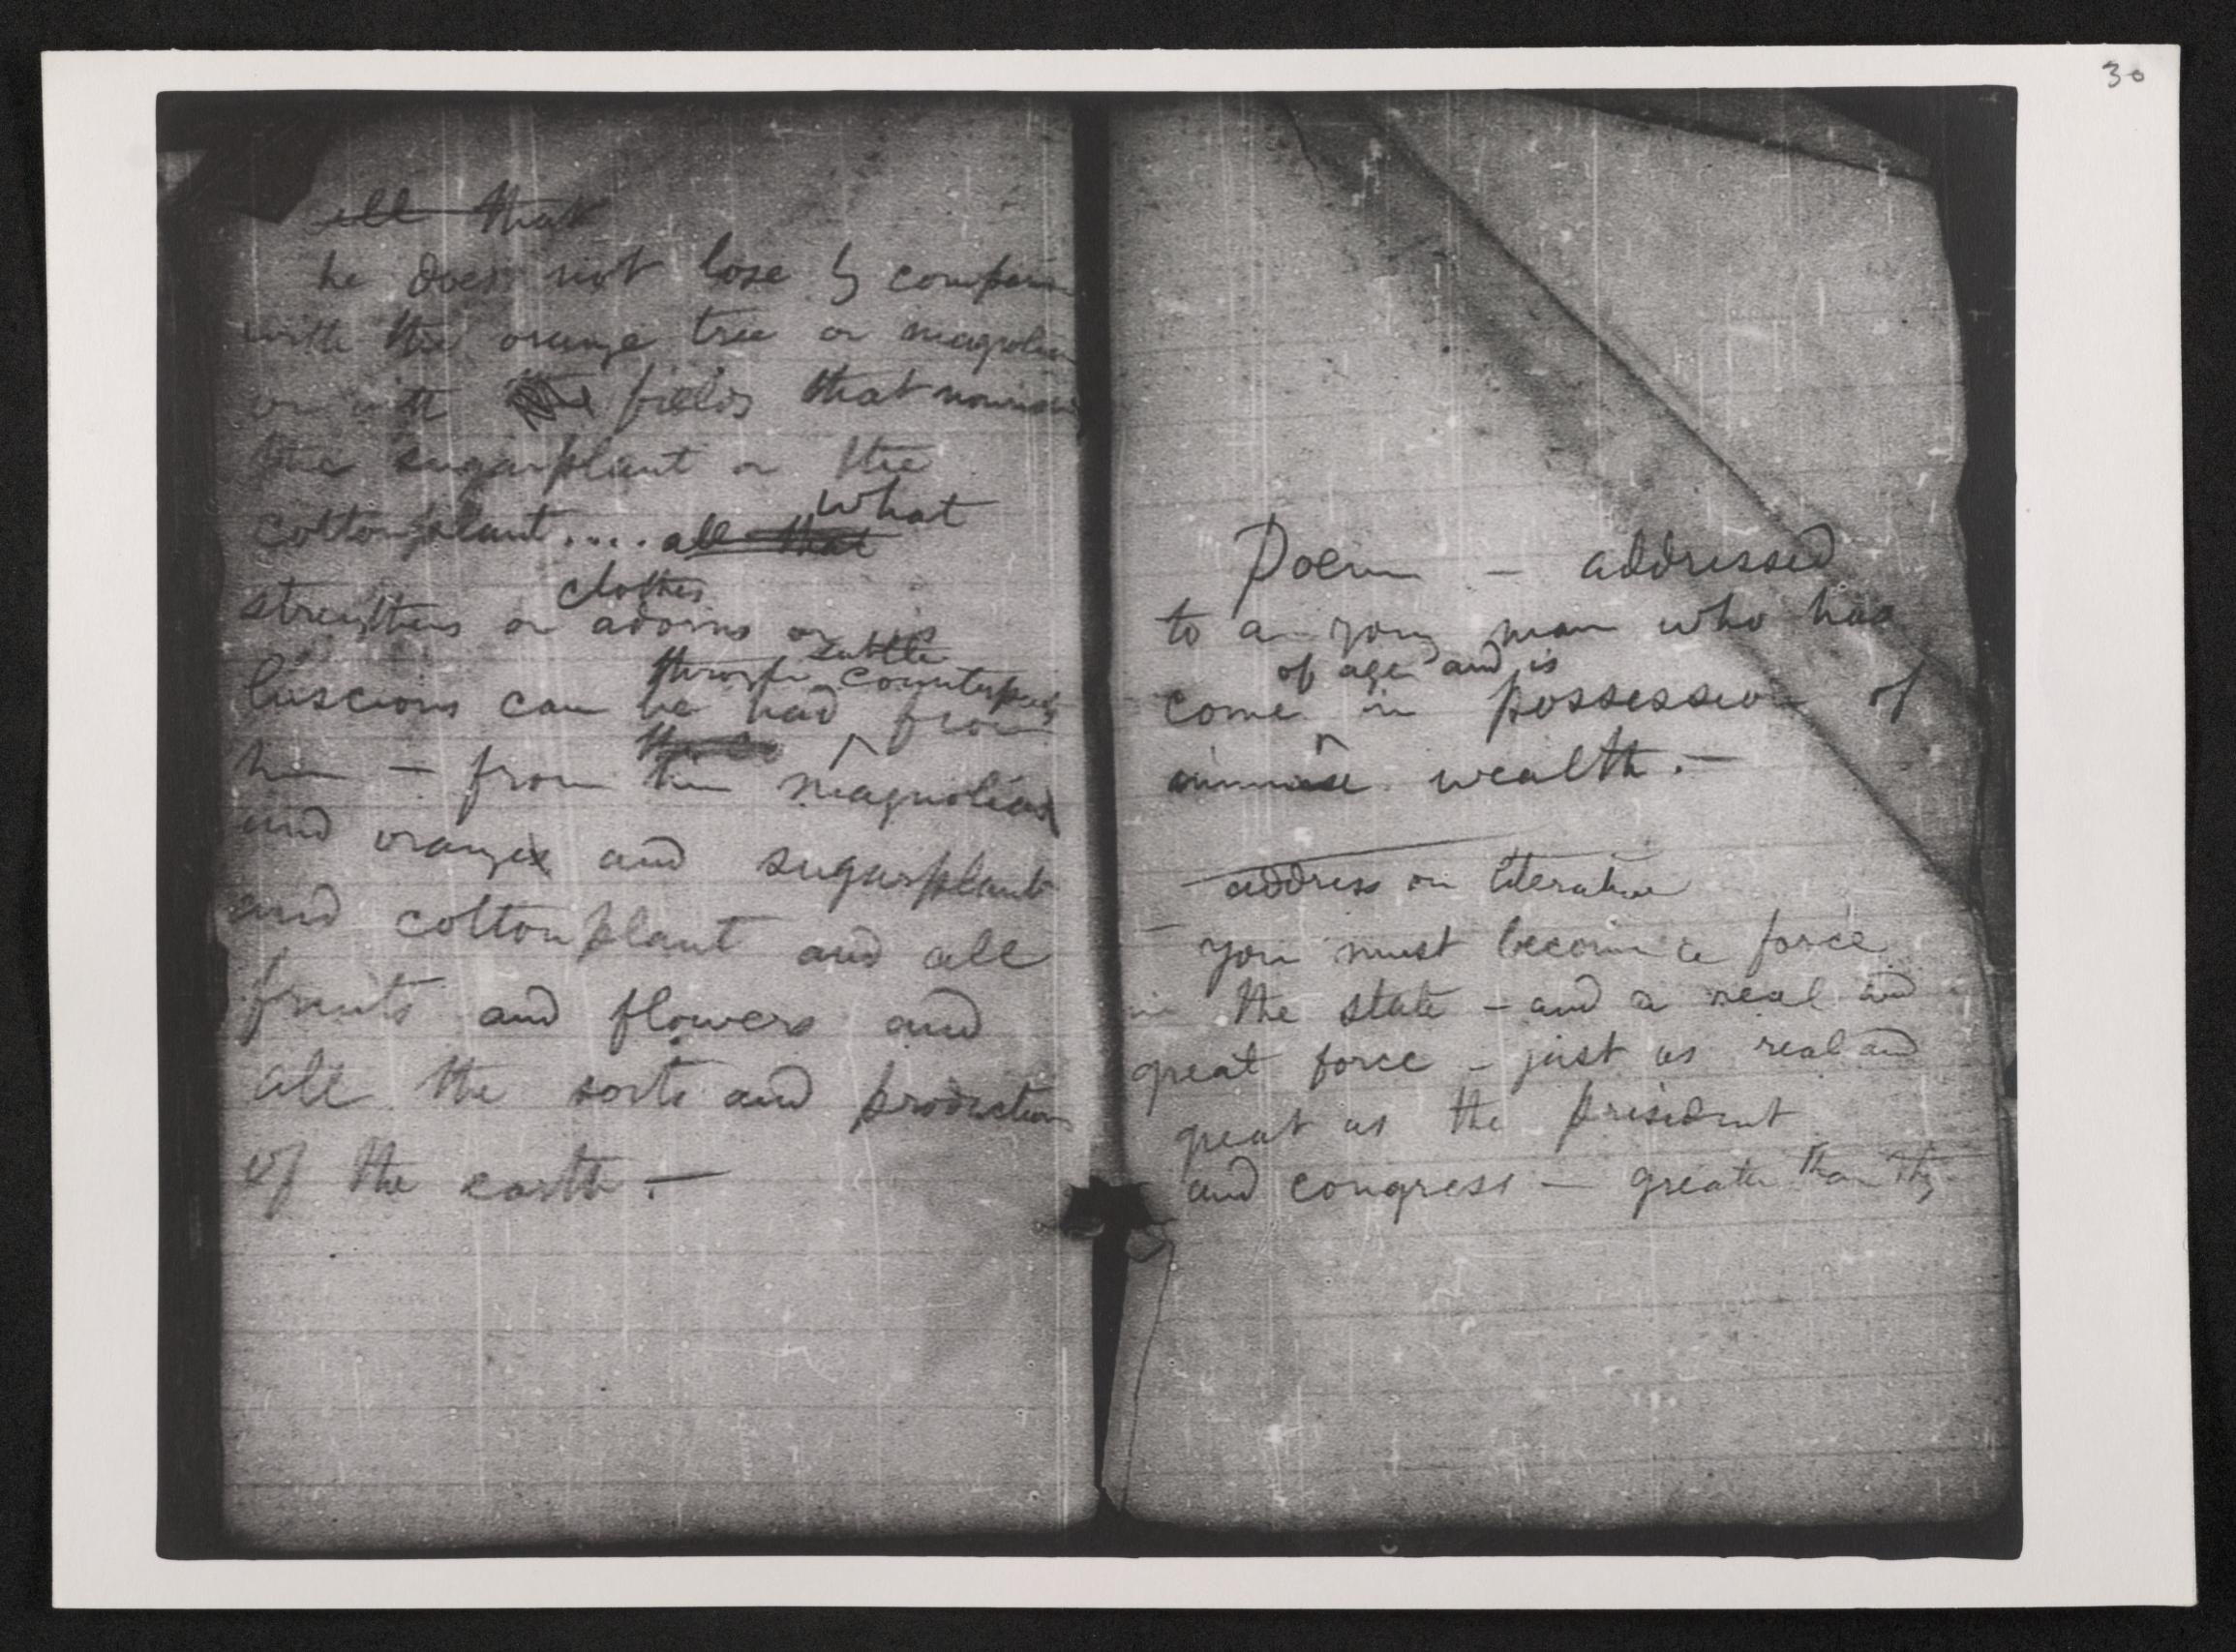 30
all that
he does not lose by comparison
with the orange tree or magnolia
or with the fields that nourish
the sugarplant or the
what
cottonplant.... all that
clothes
strengthens or adorns or is
luscious can be had from
through subtle counterparts
him — from him magnolias
and oranges and sugarplant
and cottonplant and all
fruits and flowers and
all the sorts and productions
of the earth.—
Poem — addressed
to a young man who has
of age and is
come in possession of
immense wealth.—
address on literature
you must become a force
in the state — and a real and
great force — just as real and
great as the president
and congress — greater than they